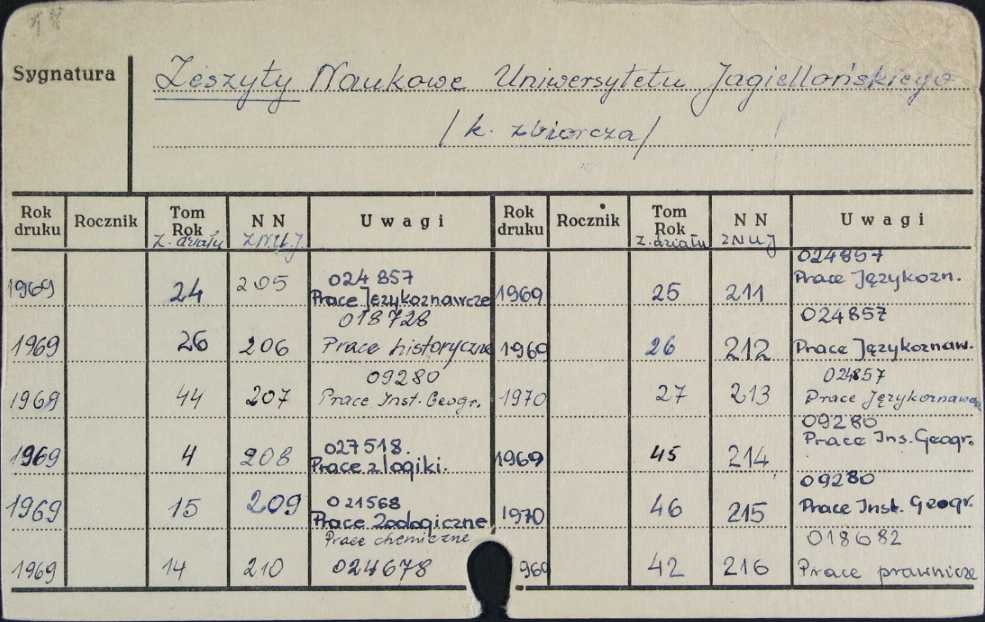 Sygnatura
Zeszyty Naukowe Uniwersytetu Jagiellońskiego
/k. zbiorcza/
Rok druku Rocznik Tom Rok z. działu NN ZNUJ Uwagi Rok druku Rocznik Tom Rok z. działu NN ZNUJ Uwagi
1969 24 205 024857 Prace Językoznawcze 1969 25 211 024857 Prace Językozn.
1969 26 206 018728 Prace historyczne 1969 26 212 024857 Prace Językoznaw.
1969 44 207 09280 Prace Inst. Geogr. 1970 27 213 024857 Prace Językoznawcze
1969 4 208 027518. Prace z logiki. 1969 45 214 09280 Prace Ins. Geogr.
1969 15 209 021568 Prace Zoologiczne 1970 46 215 09280 Prace Inst. Geogr.
1969 14 210 Prace chemiczne 024678 969 42 216 018682 Prace prawnicze